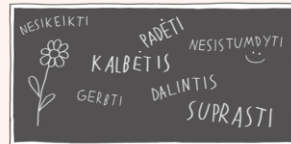 NESIKEIKTI
PADĖTI
NESISTUMDYTI
KALBĖTIS
GERBTI
DALINTIS
SUPRASTI